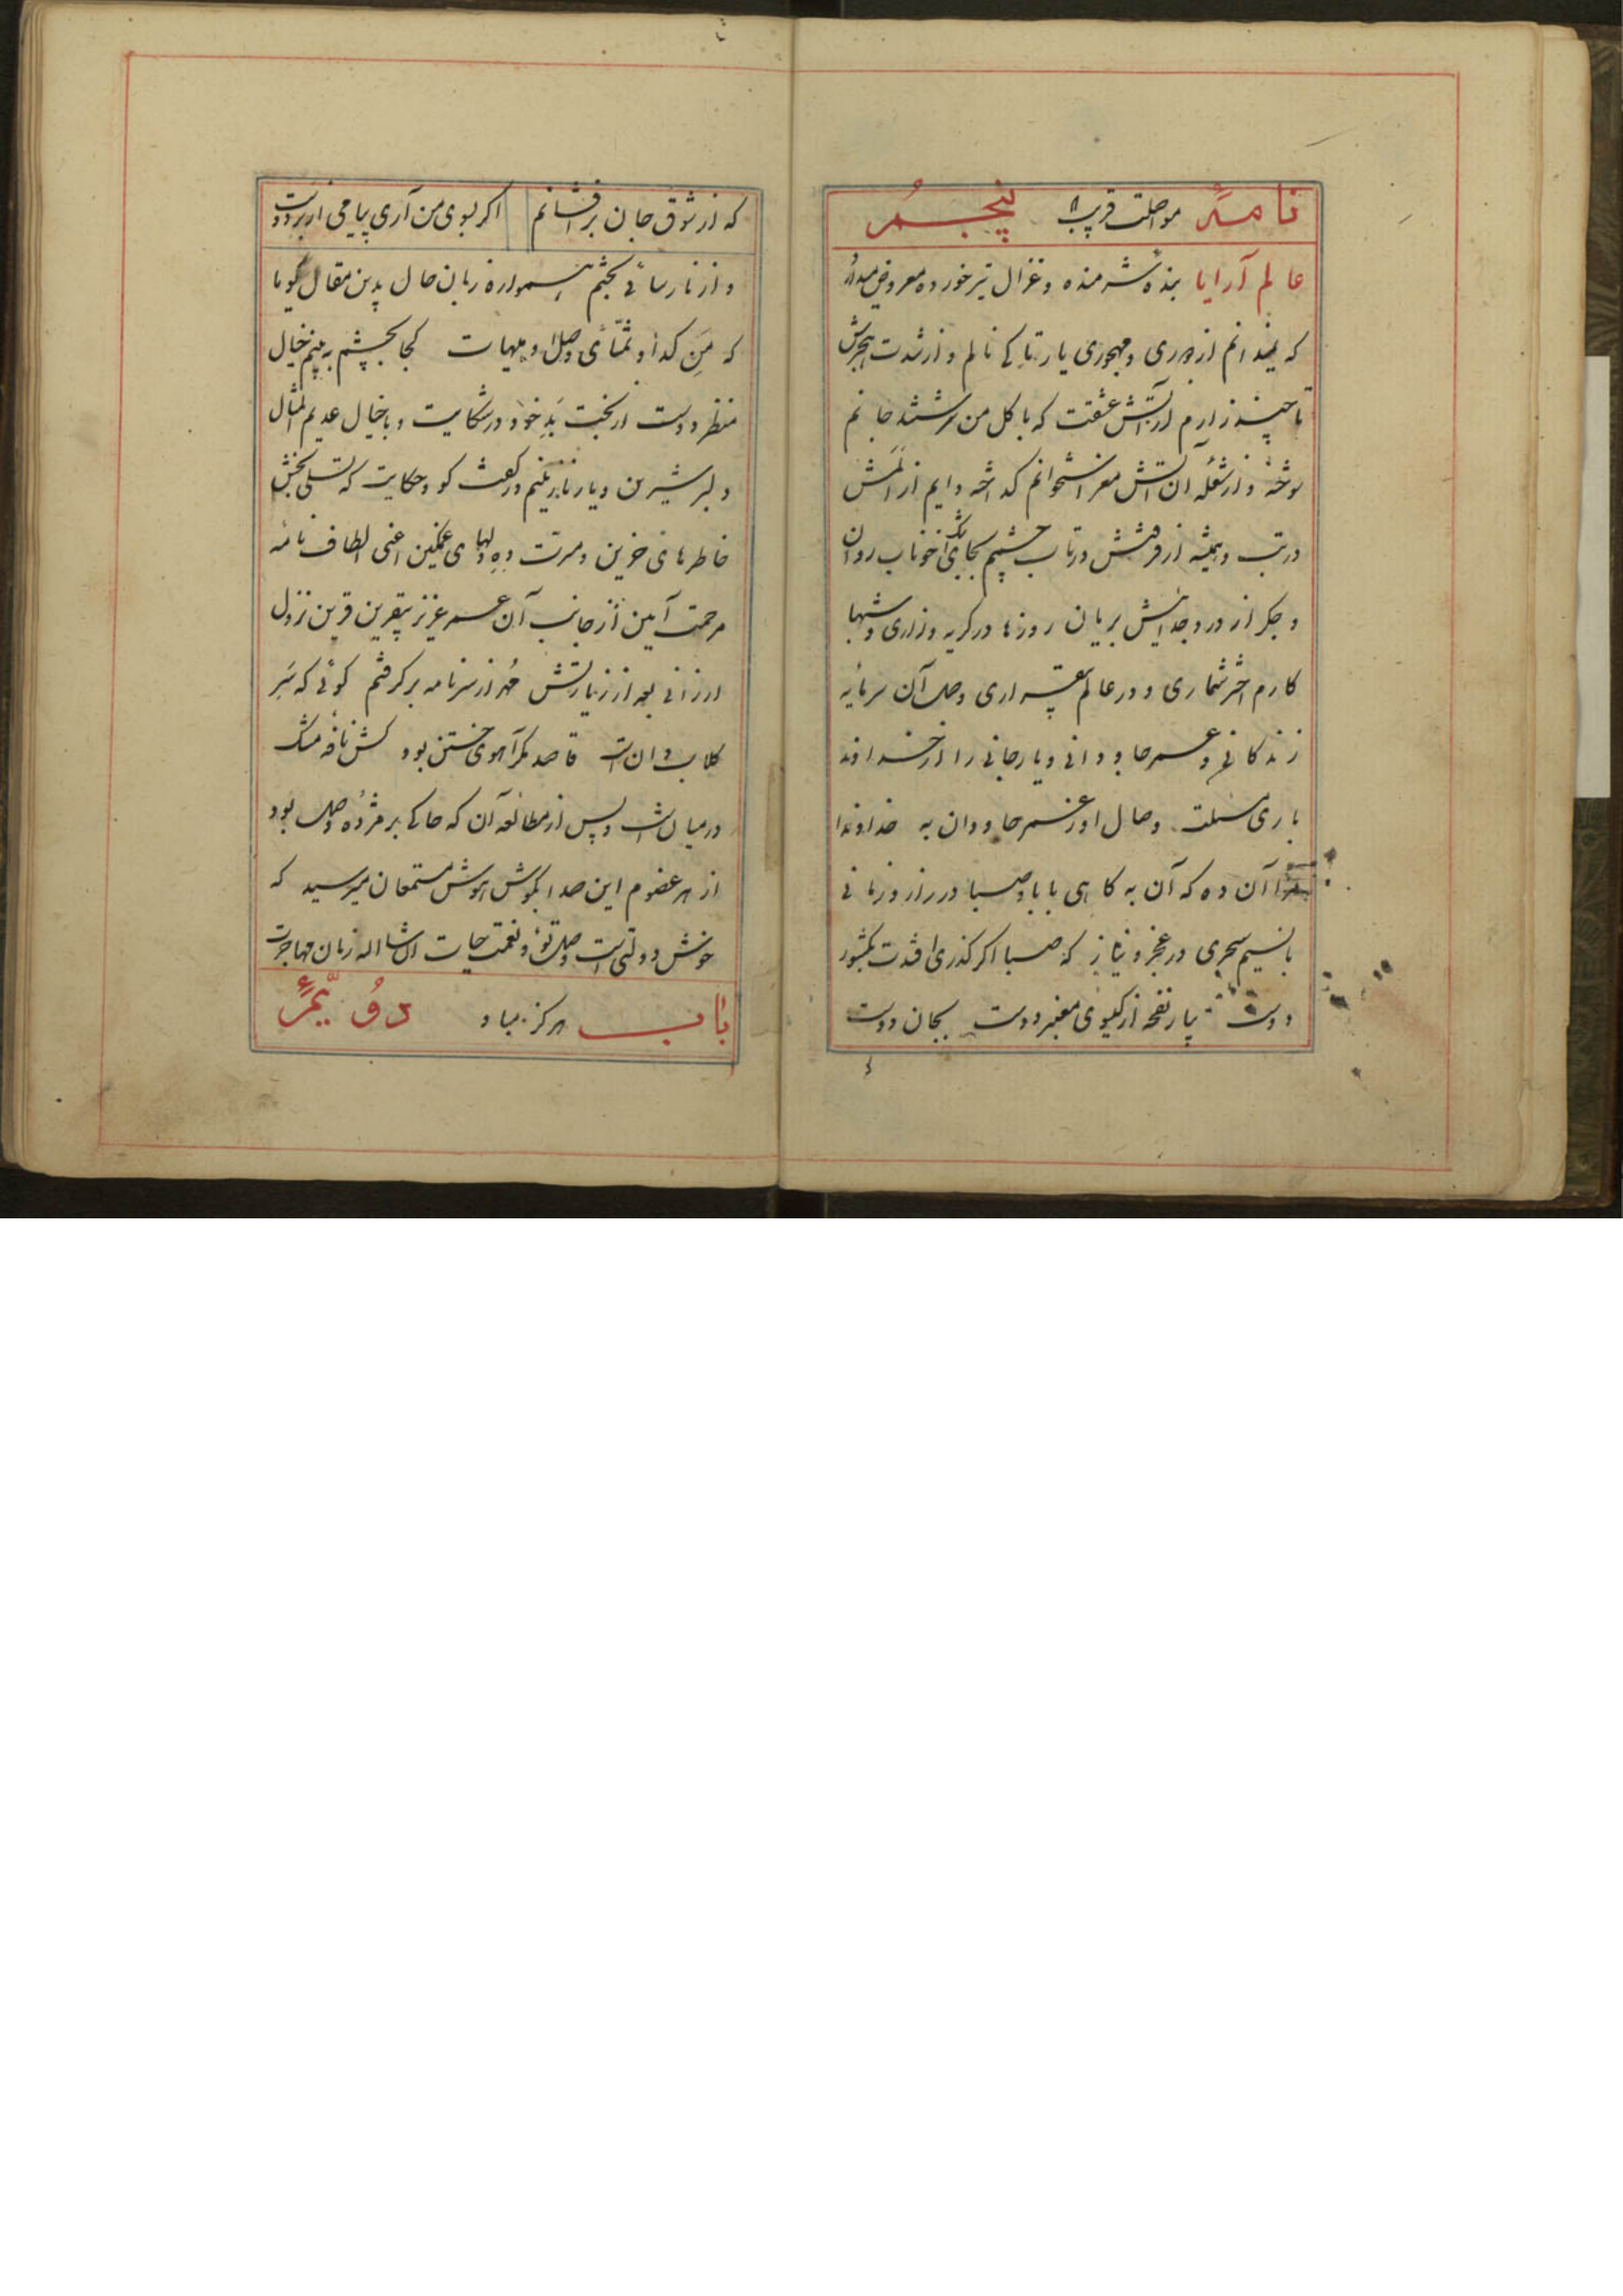 نامهٔ مواصلت قریب پنجم
عالم آرایا بندهٔ شرمنده و غزال تیر خورده معروض میدارد
که نمیدانم از دوری و مهجوری یار تا کی نالم و از شدت هجرش
تا چند زارم از آتش عشقت که با گل من سرشتند جانم
سوخته و از شعله آن آتش مغز استخوانم گداخته دایم از المش
در تب و همیشه از فرقتش در تاب چشمم بجای اشک خوناب روان
و جگر از درد جدائیش بریان روزها در گریه و زاری و شبها
کارم اختر شماری و در عالم بیقراری وصل آن سرمایه
زندگانی و عمر جاودانی و یار جانی را از خداوند
باری مسئلت وصال او ز عمر جاودان به خداوندا
مرا آن ده که آن به گاهی با باد صبا در راز و زمانی
با نسیم سحری در عجز و نیاز که صبا اگر گذری افتدت بکشور
دوست بیار نفحه از گیسوی معنبر دوست بجان دوست
که از شوق جان برافشانم اگر بسوی من آری پیامی از بر دوست
و از نارسائی بختم همواره زبان حال بدین مقال گویا
که من گدا و تمنای وصل او هیهات کجا بچشم به بینم خیال
منظر دوست از بخت بد خود در شکایت و با خیال عدیم المثال
دلبر شیرین و یار نازنینم در گفت گو و حکایت که تسلی بخش
خاطرهای حزین و مسرت ده دلهای غمگین اعنی الطاف نامه
مرحمت آیین از جانب آن عمر عزیز بیقرین قرین نزول
ارزانی بعد از زیارتش مهر از سر نامه برگرفتم گوئی که سر
گلابدان است قاصد مگر آهوی ختن بود کش نافه مشک
در میان است و پس از مطالعه آن که حاکی بر مژده وصل بود
از هر عضوم این صدا بگوش هوش مستمعان میرسید که
خوش دولتی است وصل تو و نعمت حیات انشاءالله زمان مهاجرت
باب هرگز مباد دویم